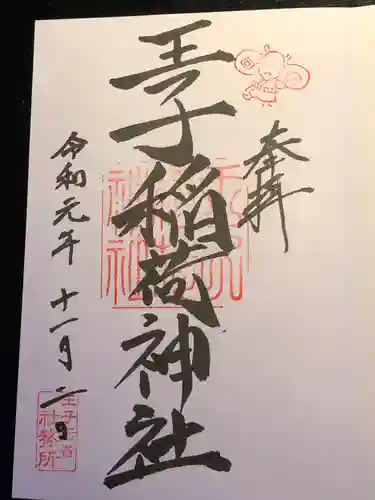 奉拝
王子稲荷神社
令和元年十一月二日
社務所